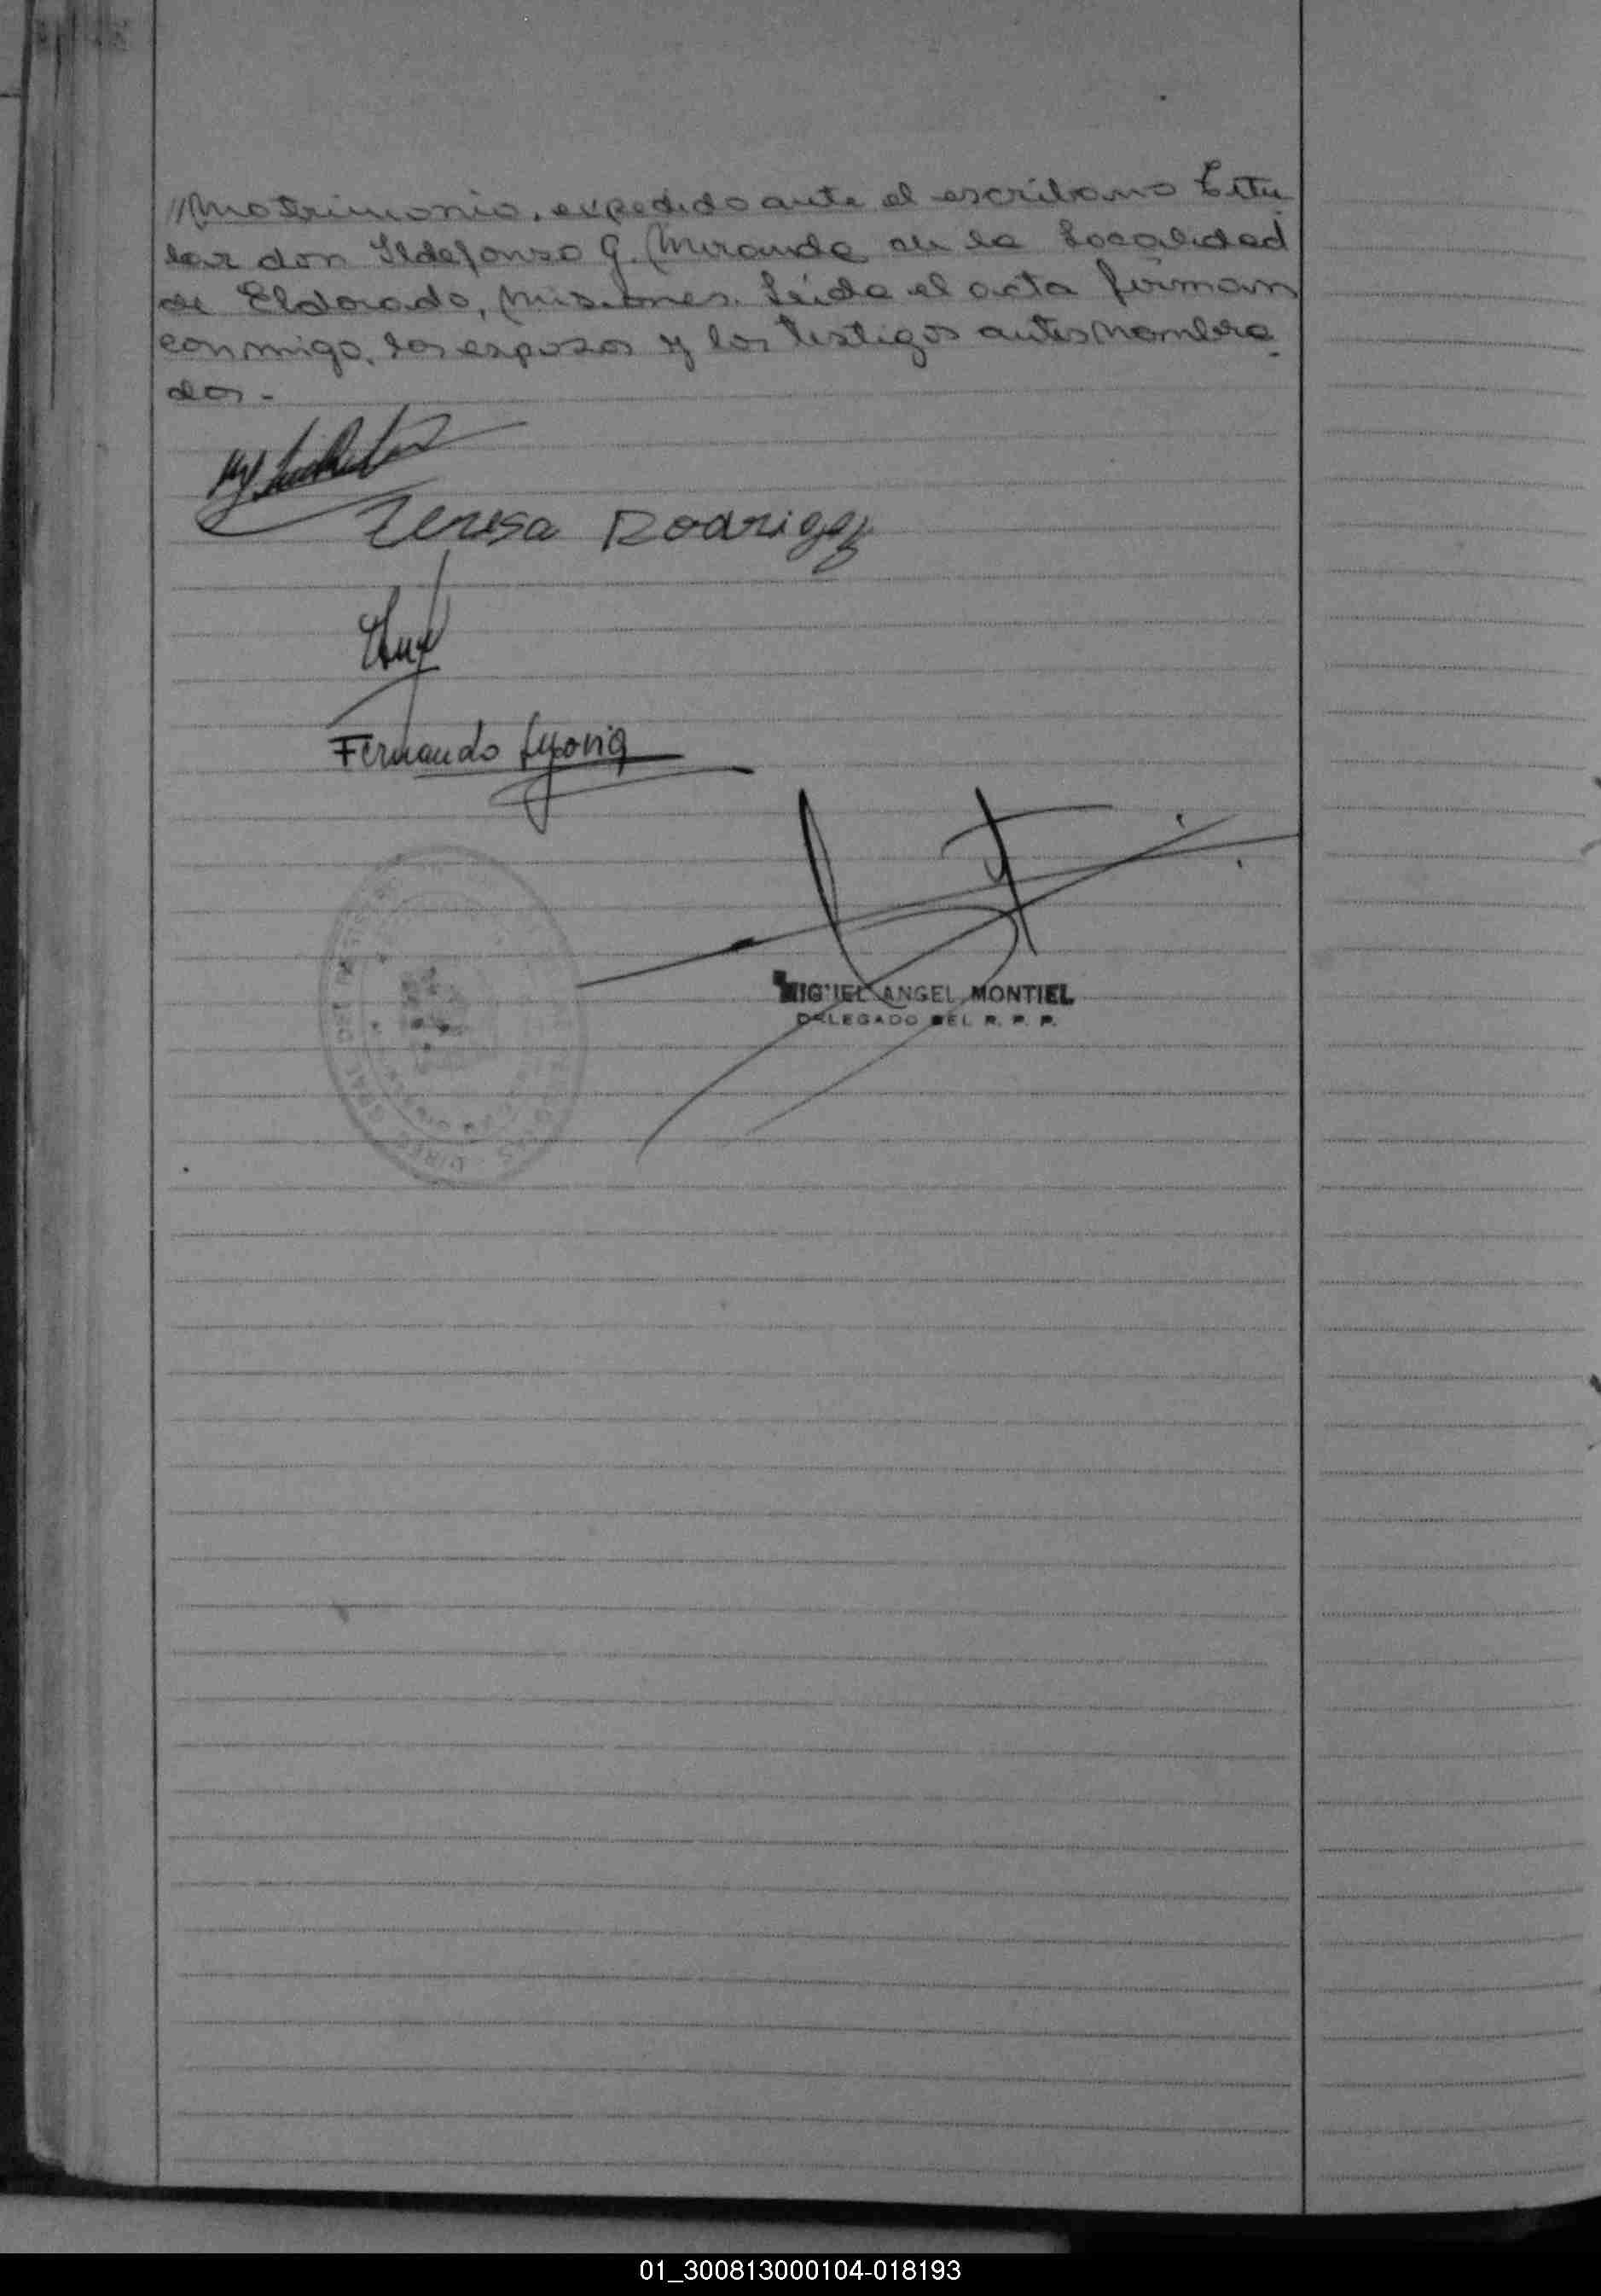 //Matrimonio, expedido ante el escribano Titu
lar don Ildefonso G. Miranda en la Localidad
de Eldorado, Misiones. Leída el acta firman
conmigo, los esposos y los testigos antes nombra
dos.-
Teresa Rodrigez
Fernando
MIGUEL ANGEL MONTIEL
DELEGADO DEL R. P. P.
01_300813000104-018193